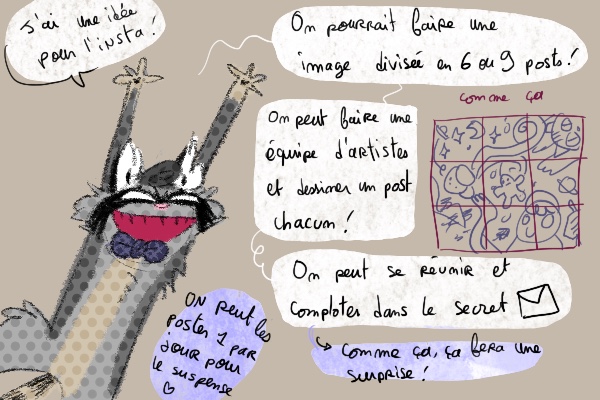 J'ai une idée
pour l'insta!
On pourrait faire une
image divisée en 6 ou 9 posts!
comme ça
On peut faire une
équipe d'artistes
et dessiner un post
chacun!
On peut se réunir et
comploter dans le secret
Comme ça, ça fera une
surprise!
ON peut les
poster 1 par
jour pour
le suspense